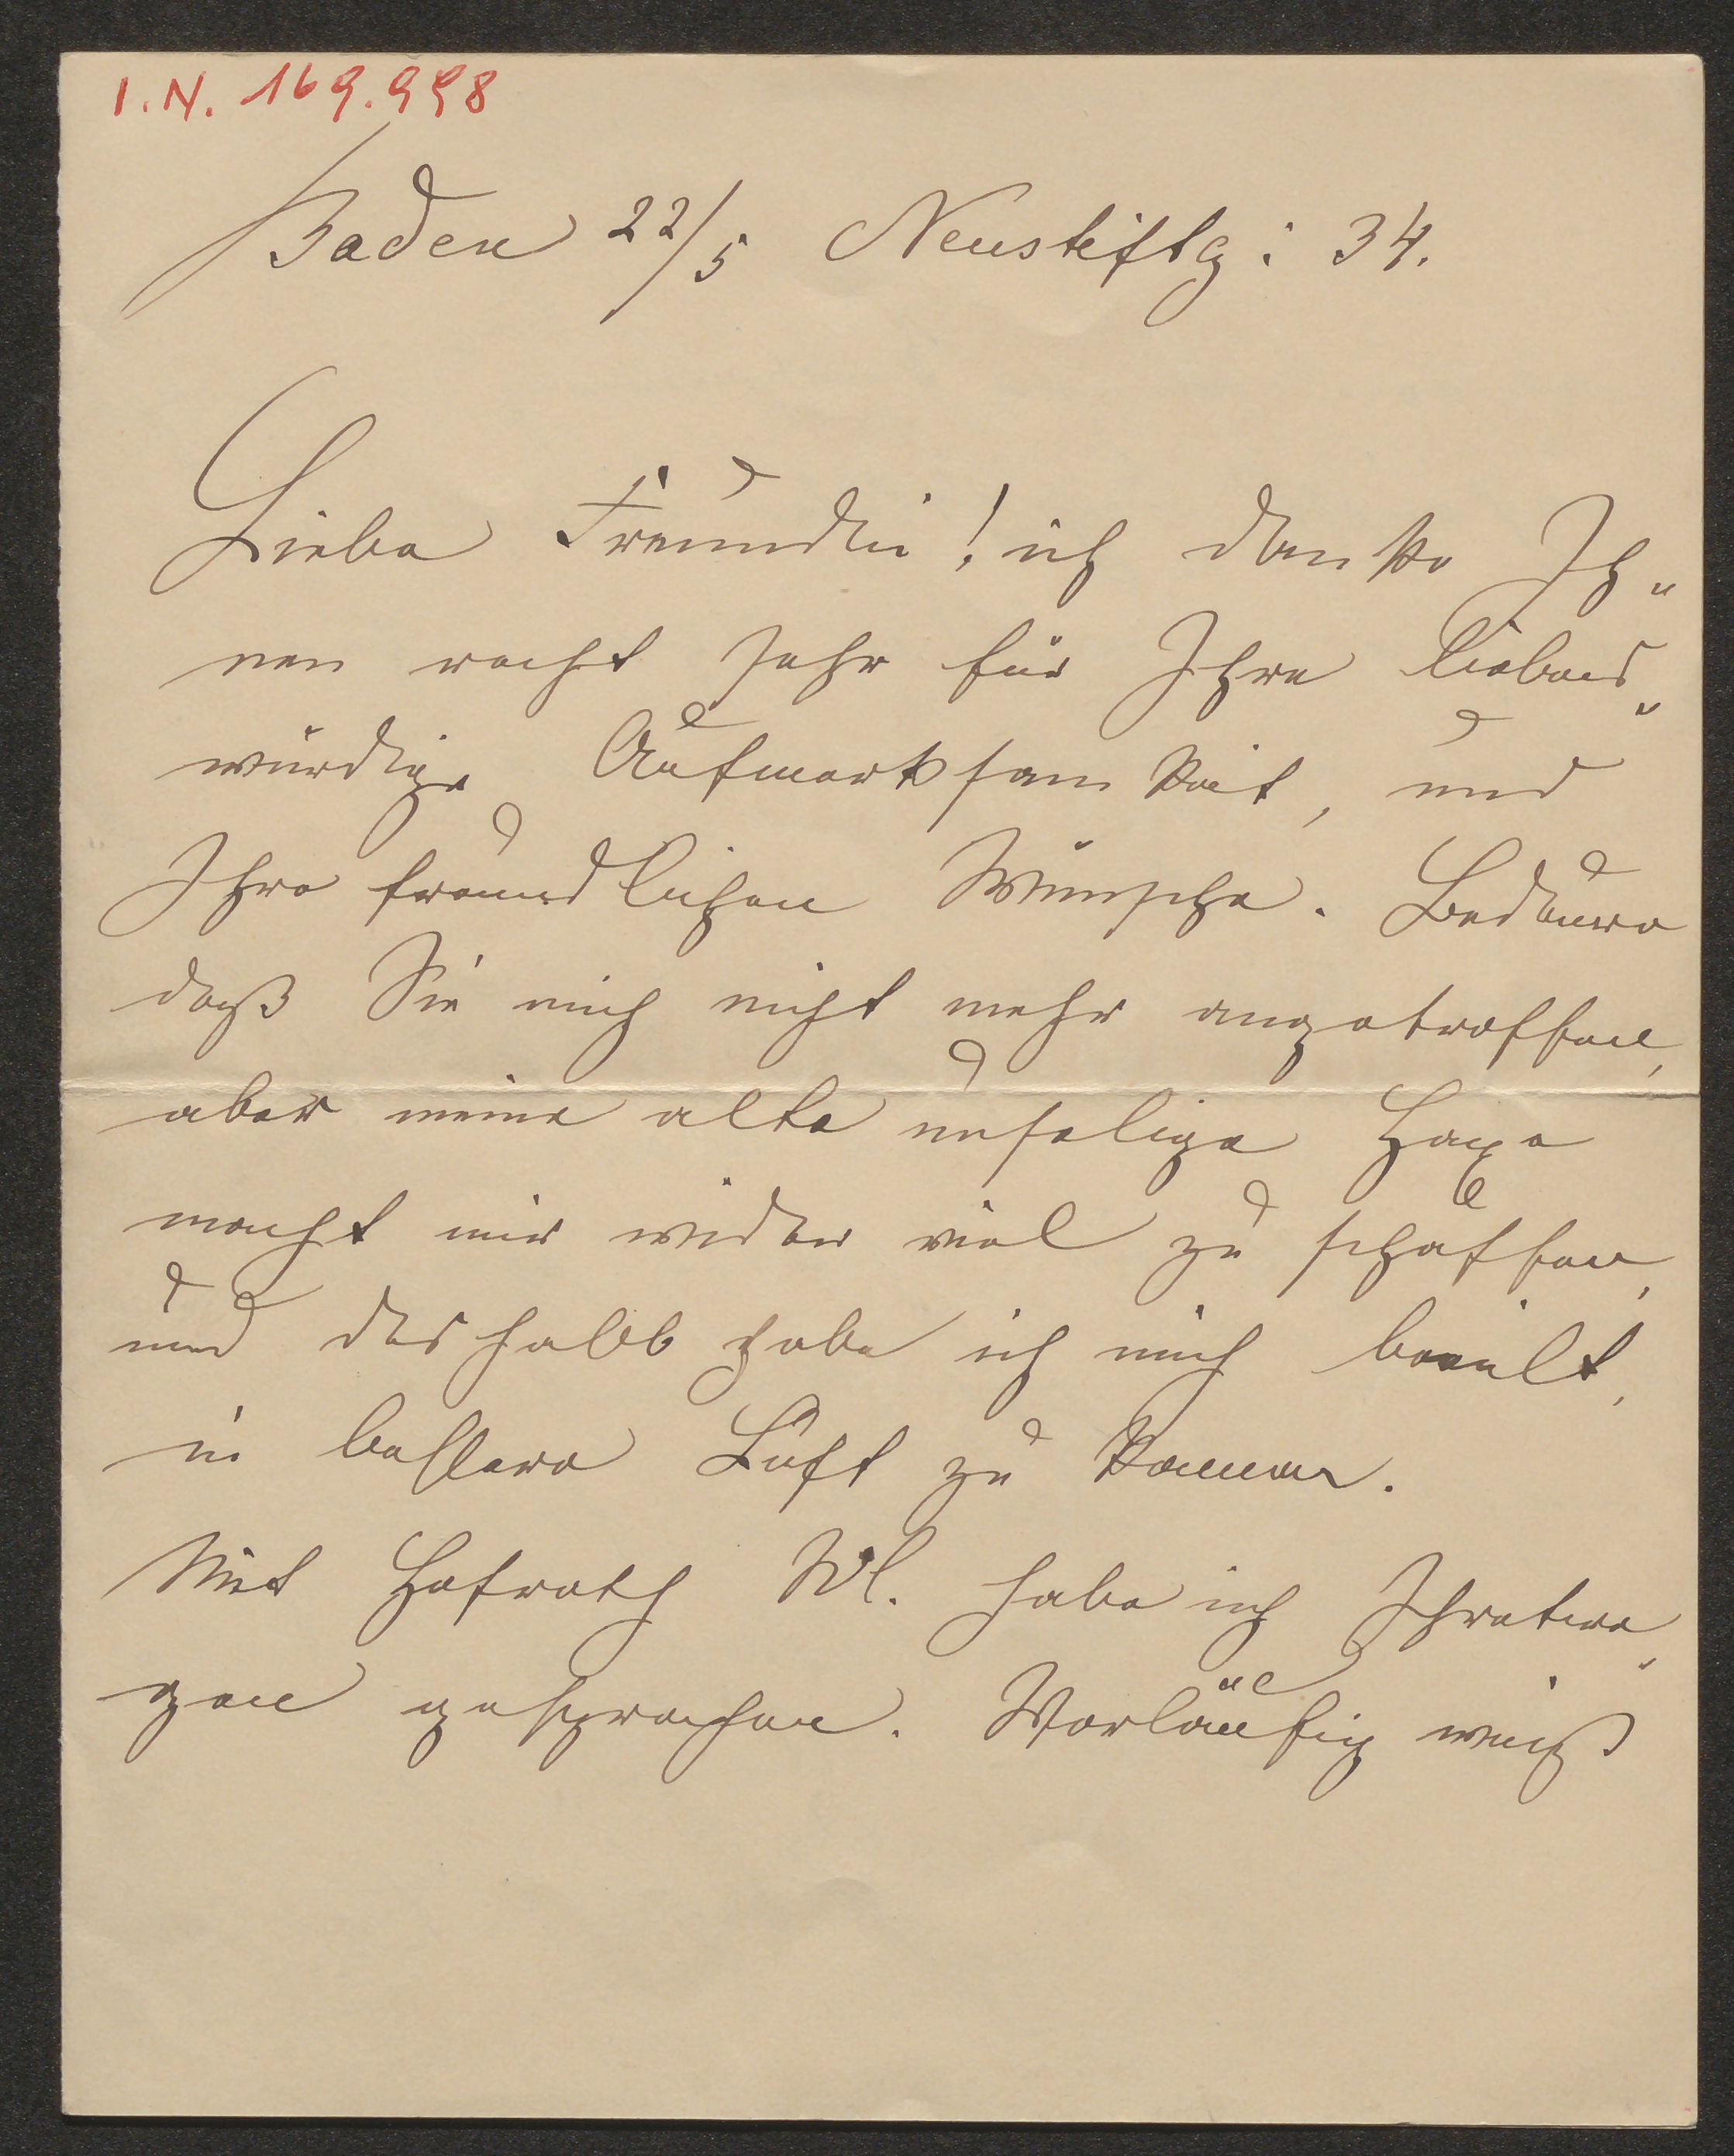 I.N. 169.998
Baden 22/5 Neustiftg: 34.
Liebe Freundin! ich danke Ih„
nen recht sehr für Ihre liebens„
würdige Aufmerksamkeit, und
Ihre freundlichen Wünsche. Bedaure
daß Sie mich nicht mehr angetroffen,
aber meine alte unselige Haxe
macht mir wieder viel zu schaffen,
und deshalb habe ich mich beeilt,
in bessere Luft zu kommen.
Mit Hofrath Wl. habe ich Ihretwe„
gen gesprochen. Vorläufig weiß